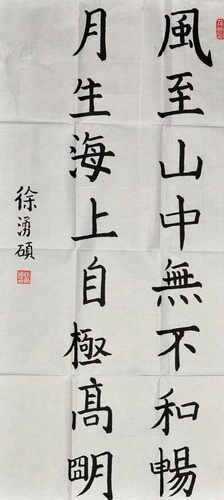 風至山中無不和暢
月生海上自極高明
徐湧碩